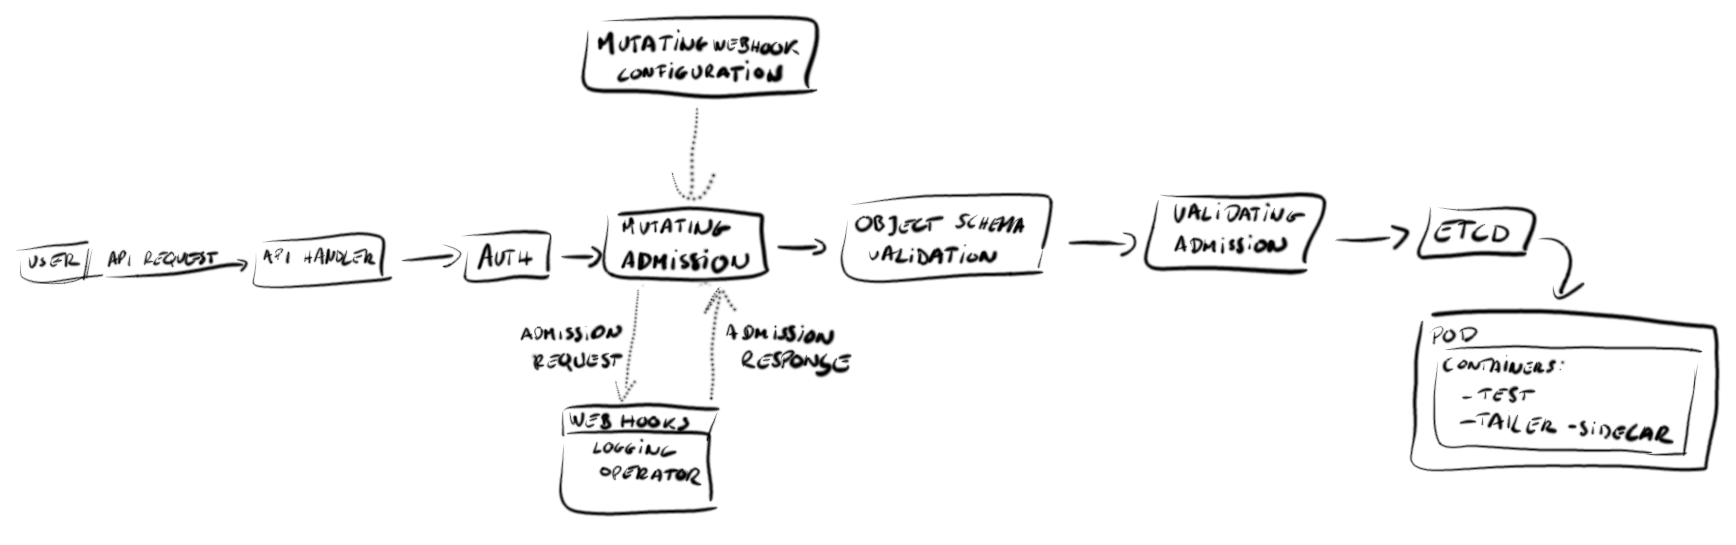 MUTATING WEBHOOK
CONFIGURATION
USER
API REQUEST
API HANDLER
AUTH
MUTATING
ADMISSION
OBJECT SCHEMA
VALIDATION
VALIDATING
ADMISSION
ETCD
ADMISSION
REQUEST
ADMISSION
RESPONSE
WEB HOOKS
LOGGING
OPERATOR
POD
CONTAINERS:
- TEST
- TAILER - SIDECAR